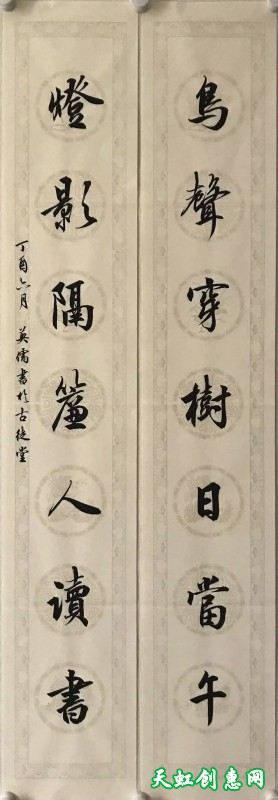 鳥聲穿樹日當午
燈影隔簾人讀書
丁酉六月 英儒書於古徒堂
天虹创惠网